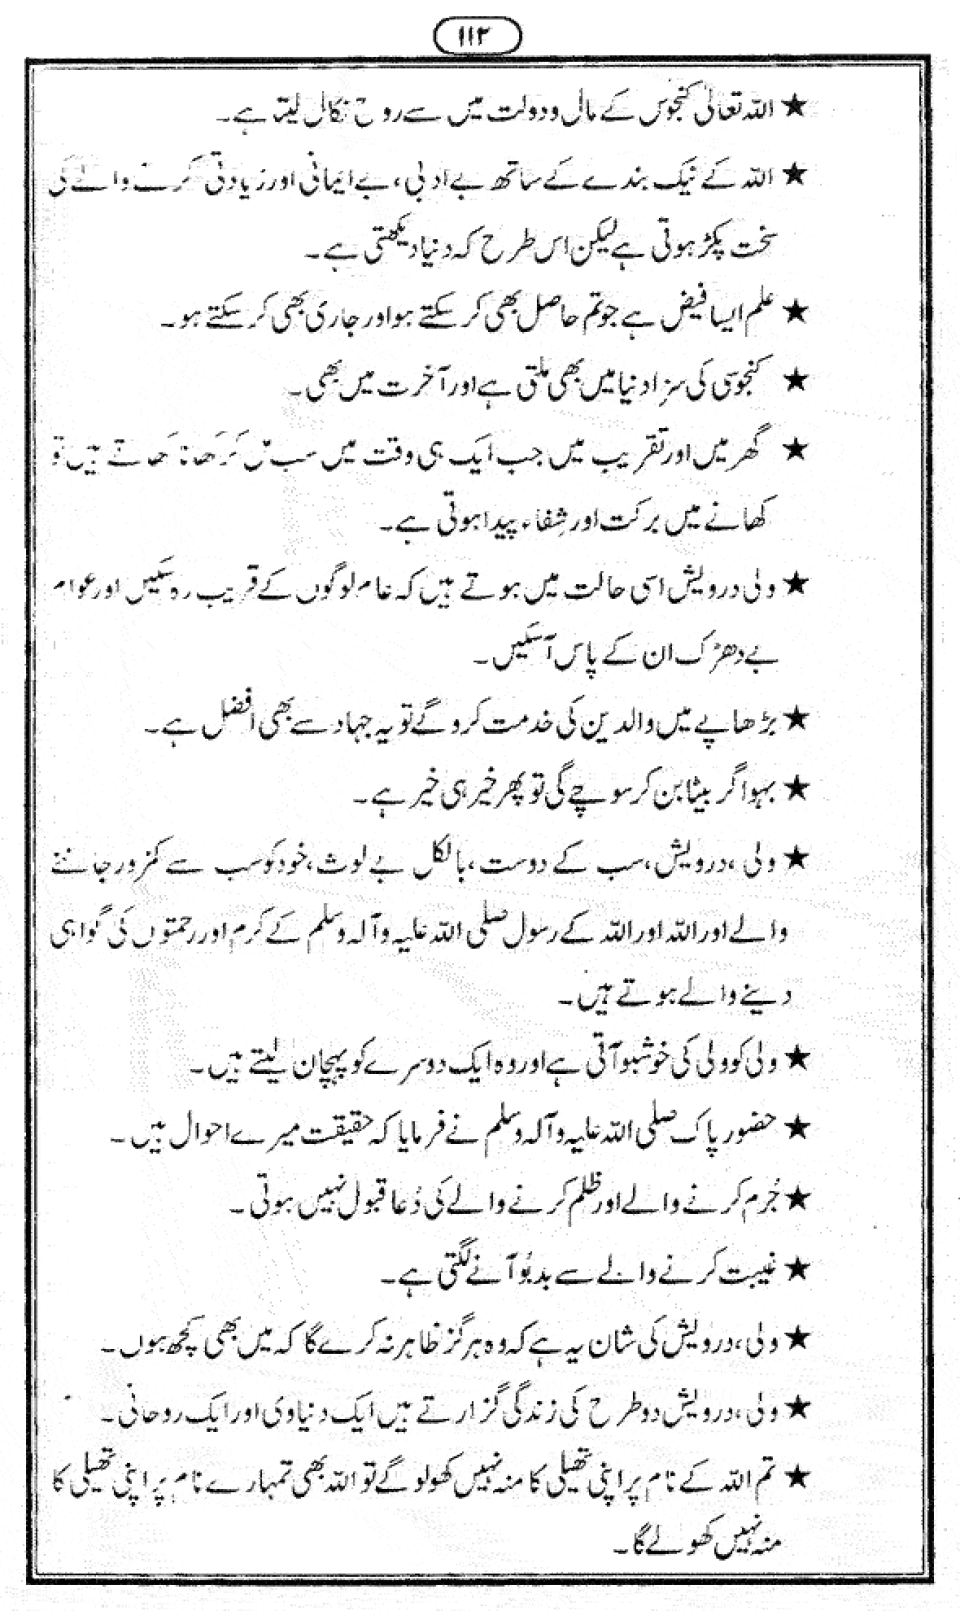 ۱۱۲
★ اللہ تعالیٰ کنجوس کے مال و دولت میں سے روح نکال لیتا ہے۔
★ اللہ کے نیک بندے کے ساتھ بے ادبی، بے ایمانی اور زیادتی کرنے والے کی
سخت پکڑ ہوتی ہے لیکن اس طرح کہ دنیا دیکھتی ہے۔
★ علم ایسا فیض ہے جو تم حاصل بھی کر سکتے ہو اور جاری بھی کر سکتے ہو۔
★ کنجوسی کی سزا دنیا میں بھی ملتی ہے اور آخرت میں بھی۔
★ گھر میں اور تقریب میں جب ایک ہی وقت میں سب مل کر کھانا کھاتے ہیں تو
کھانے میں برکت اور شِفاء پیدا ہوتی ہے۔
★ ولی درویش اسی حالت میں ہوتے ہیں کہ عام لوگوں کے قریب رہ سکیں اور عوام
بے دھڑک ان کے پاس آ سکیں۔
★ بڑھاپے میں والدین کی خدمت کرو گے تو یہ جہاد سے بھی افضل ہے۔
★ بہو اگر بیٹا بن کر سوچے گی تو پھر خیر ہی خیر ہے۔
★ ولی، درویش، سب کے دوست، بالکل بے لوث، خود کو سب سے کمزور جاننے
والے اور اللہ اور اللہ کے رسول صلی اللہ علیہ وآلہ وسلم کے کرم اور رحمتوں کی گواہی
دینے والے ہوتے ہیں۔
★ ولی کو ولی کی خوشبو آتی ہے اور وہ ایک دوسرے کو پہچان لیتے ہیں۔
★ حضور پاک صلی اللہ علیہ وآلہ وسلم نے فرمایا کہ حقیقت میرے احوال ہیں۔
★ جُرم کرنے والے اور ظلم کرنے والے کی دُعا قبول نہیں ہوتی۔
★ غیبت کرنے والے سے بدبُو آنے لگتی ہے۔
★ ولی، درویش کی شان یہ ہے کہ وہ ہرگز ظاہر نہ کرے گا کہ میں بھی کچھ ہوں۔
★ ولی، درویش دو طرح کی زندگی گزارتے ہیں ایک دنیاوی اور ایک روحانی۔
★ تم اللہ کے نام پر اپنی تھیلی کا منہ نہیں کھولو گے تو اللہ بھی تمہارے نام پر اپنی تھیلی کا
منہ نہیں کھولے گا۔